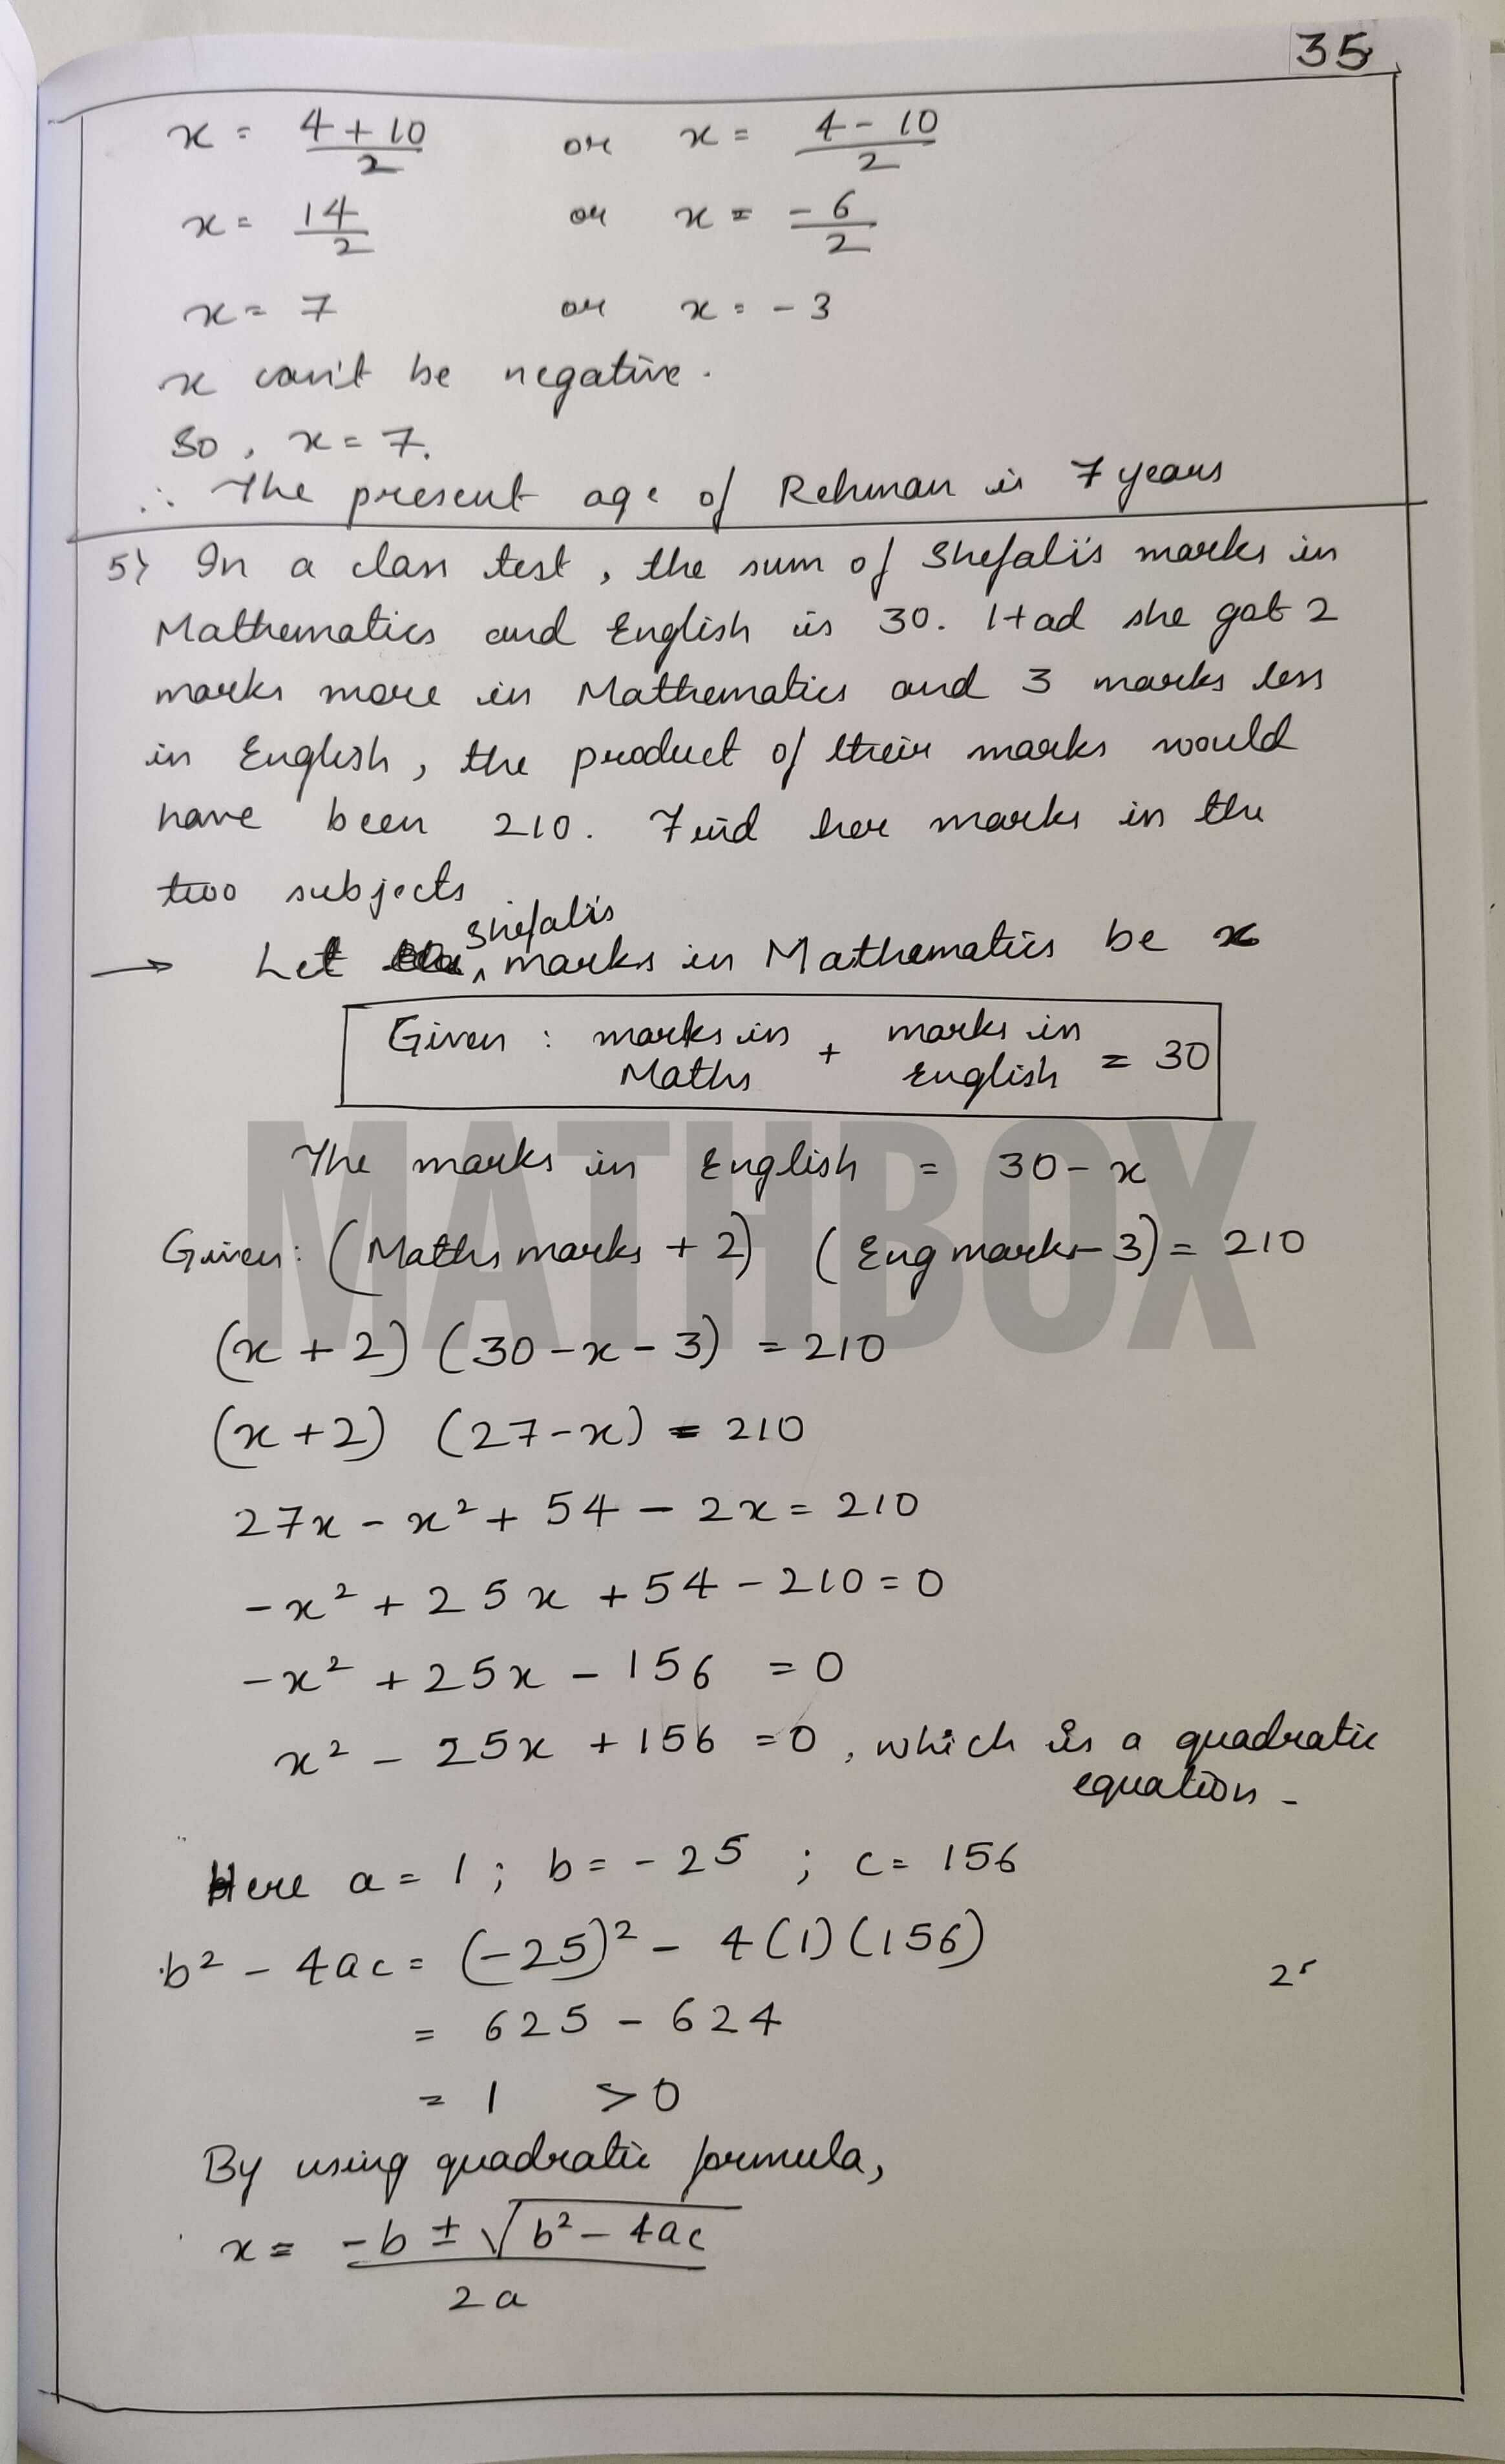 35
x = 4 + 10 / 2 or x = 4 - 10 / 2
x = 14 / 2 or x = - 6 / 2
x = 7 or x = - 3
x can't be negative.
So, x = 7.
∴ The present age of Rehman is 7 years
5) In a class test, the sum of Shefali's marks in
Mathematics and English is 30. Had she got 2
marks more in Mathematics and 3 marks less
in English, the product of their marks would
have been 210. Find her marks in the
two subjects
→ Let Shefali's marks in Mathematics be x
Given : marks in Maths + marks in English = 30
The marks in English = 30 - x
MATHBOX
Given: (Maths marks + 2) (Eng marks - 3) = 210
(x + 2) (30 - x - 3) = 210
(x + 2) (27 - x) = 210
27x - x² + 54 - 2x = 210
-x² + 25x + 54 - 210 = 0
-x² + 25x - 156 = 0
x² - 25x + 156 = 0, which is a quadratic
equation -
Here a = 1 ; b = - 25 ; c = 156
b² - 4ac = (-25)² - 4(1)(156)
= 625 - 624
= 1 > 0
By using quadratic formula,
x = -b ± √b² - 4ac / 2a